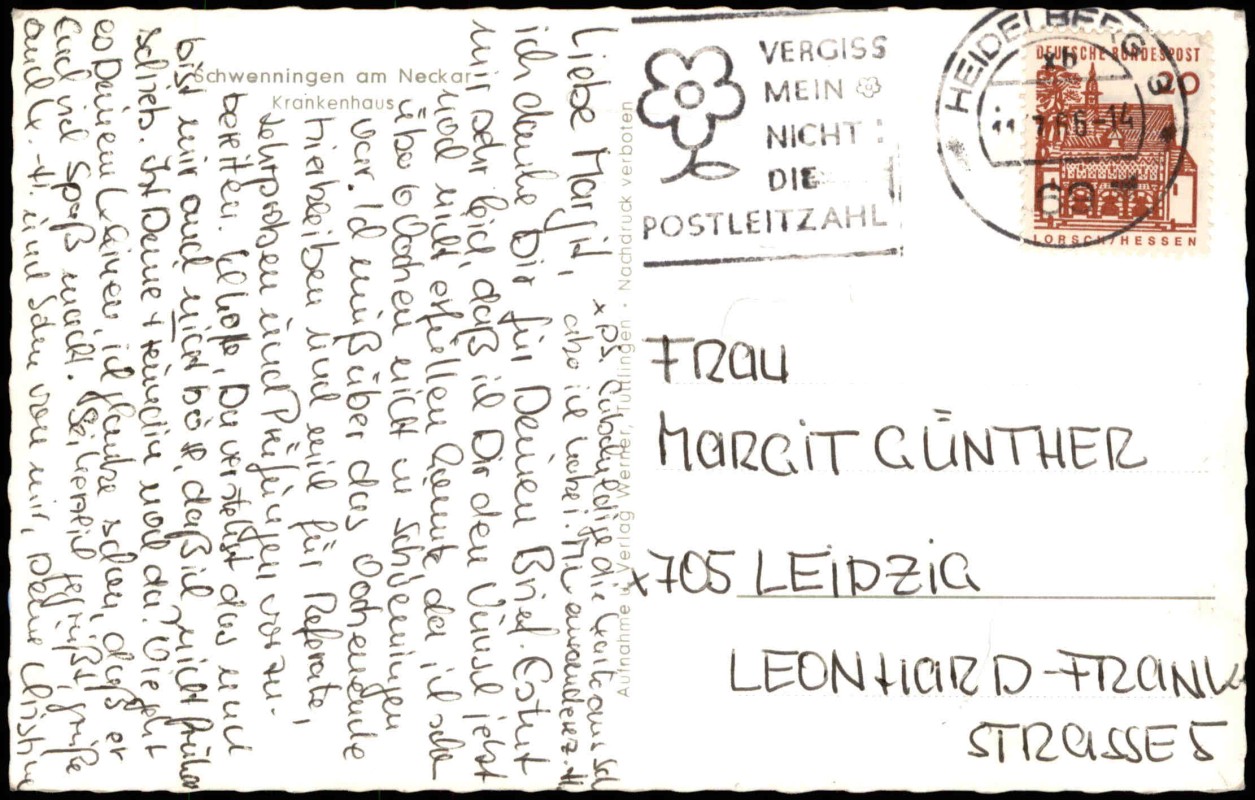 Schwenningen am Neckar
Krankenhaus
Aufnahme u. Verlag Werner, Tuttlingen · Nachdruck verboten
Liebe Margit,
ich danke Dir für Deinen Brief. Es tut
mir sehr leid, daß ich Dir den Wunsch jetzt
noch nicht erfüllen konnte, da ich schon
über 6 Wochen nicht in Schwenningen
war. Ich muß über das Wochenende
hierbleiben und mich für Referate,
Lehrproben und Prüfungen vorzu-
bereiten. Ich hoffe, Du verstehst das und
bist mir auch nicht bös, daß ich nicht früher
schrieb. Ist Deine Freundin noch da? Wie geht
es Deinem Kleinen, ich glaube schon, daß er
Euch viel Spaß macht. Sei herzlich gegrüßt, grüße
auch H. und von mir, Deine Christine
x PS. Entschuldige die Karte aus Sch
aber ich habe i. M.
VERGISS
MEIN
NICHT
DIE
POSTLEITZAHL
HEIDELBERG 3
xb
11. 66-14
69
DEUTSCHE BUNDESPOST
20
LORSCH/HESSEN
FRAU
MARGIT GÜNTHER
x705 LEIPZIG
LEONHARD-FRANK
STRASSE 5